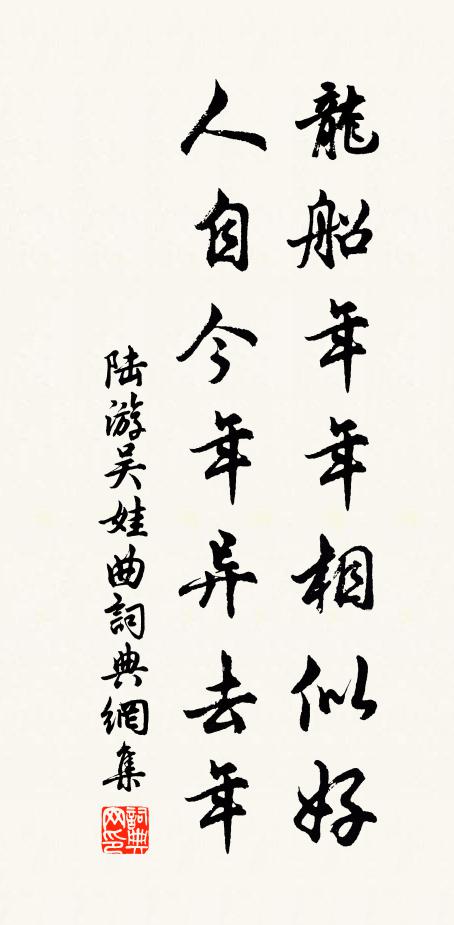 龍船年年相似好
人自今年异去年
陆游吴娃曲詞典網集
詞典
网印